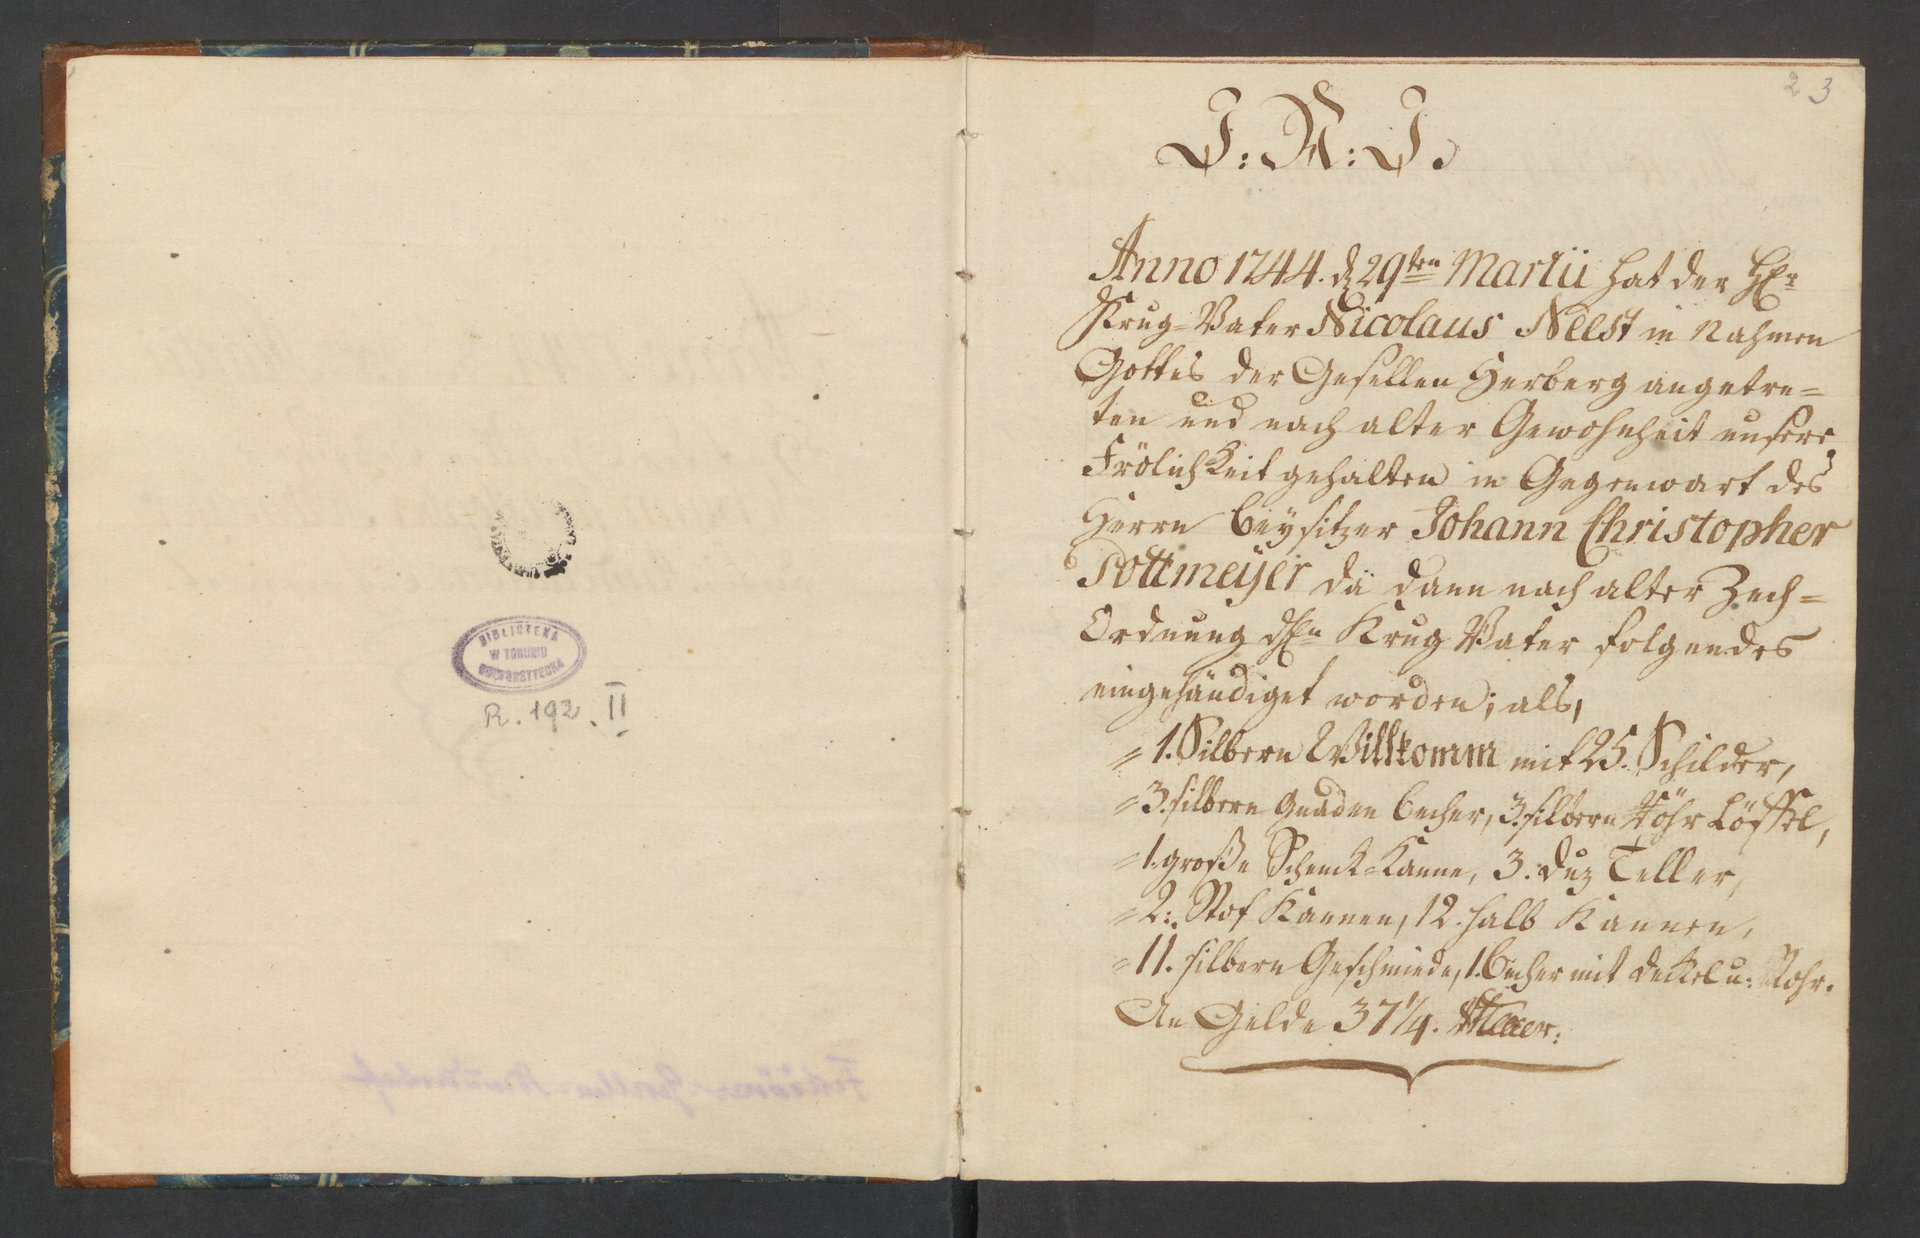 BIBLIOTEKA
W TORUNIU
UNIWERSYTECKA
R. 192. II
2 3
J: N: J.
Anno 1744. d 29ten Martii hat der HEr
Krug-Vater Nicolaus Neest in Nahmen
Gottes der Gesellen Herberg angetre=
ten und nach alter Gewohnheit unsere
Frölichkeit gehalten in Gegenwart des
Herrn beysitzer Johann Christopher
Pottmeyer da dann nach alter Zech=
Ordnung dHn Krug Vater folgendes
eingehändiget worden; als,
=1. Silbern Willkomm mit 25. Schilder,
=3. silbern Gnaden becher, 3. silbern Löffel,
=1. große Schenck=Kanne, 3. duz Teller,
=2: Stof Kannen, 12. halb Kannen,
=11. silbern Geschmiede, 1. becher mit deckel u: Rohr.
An Gelde 37 1/4.